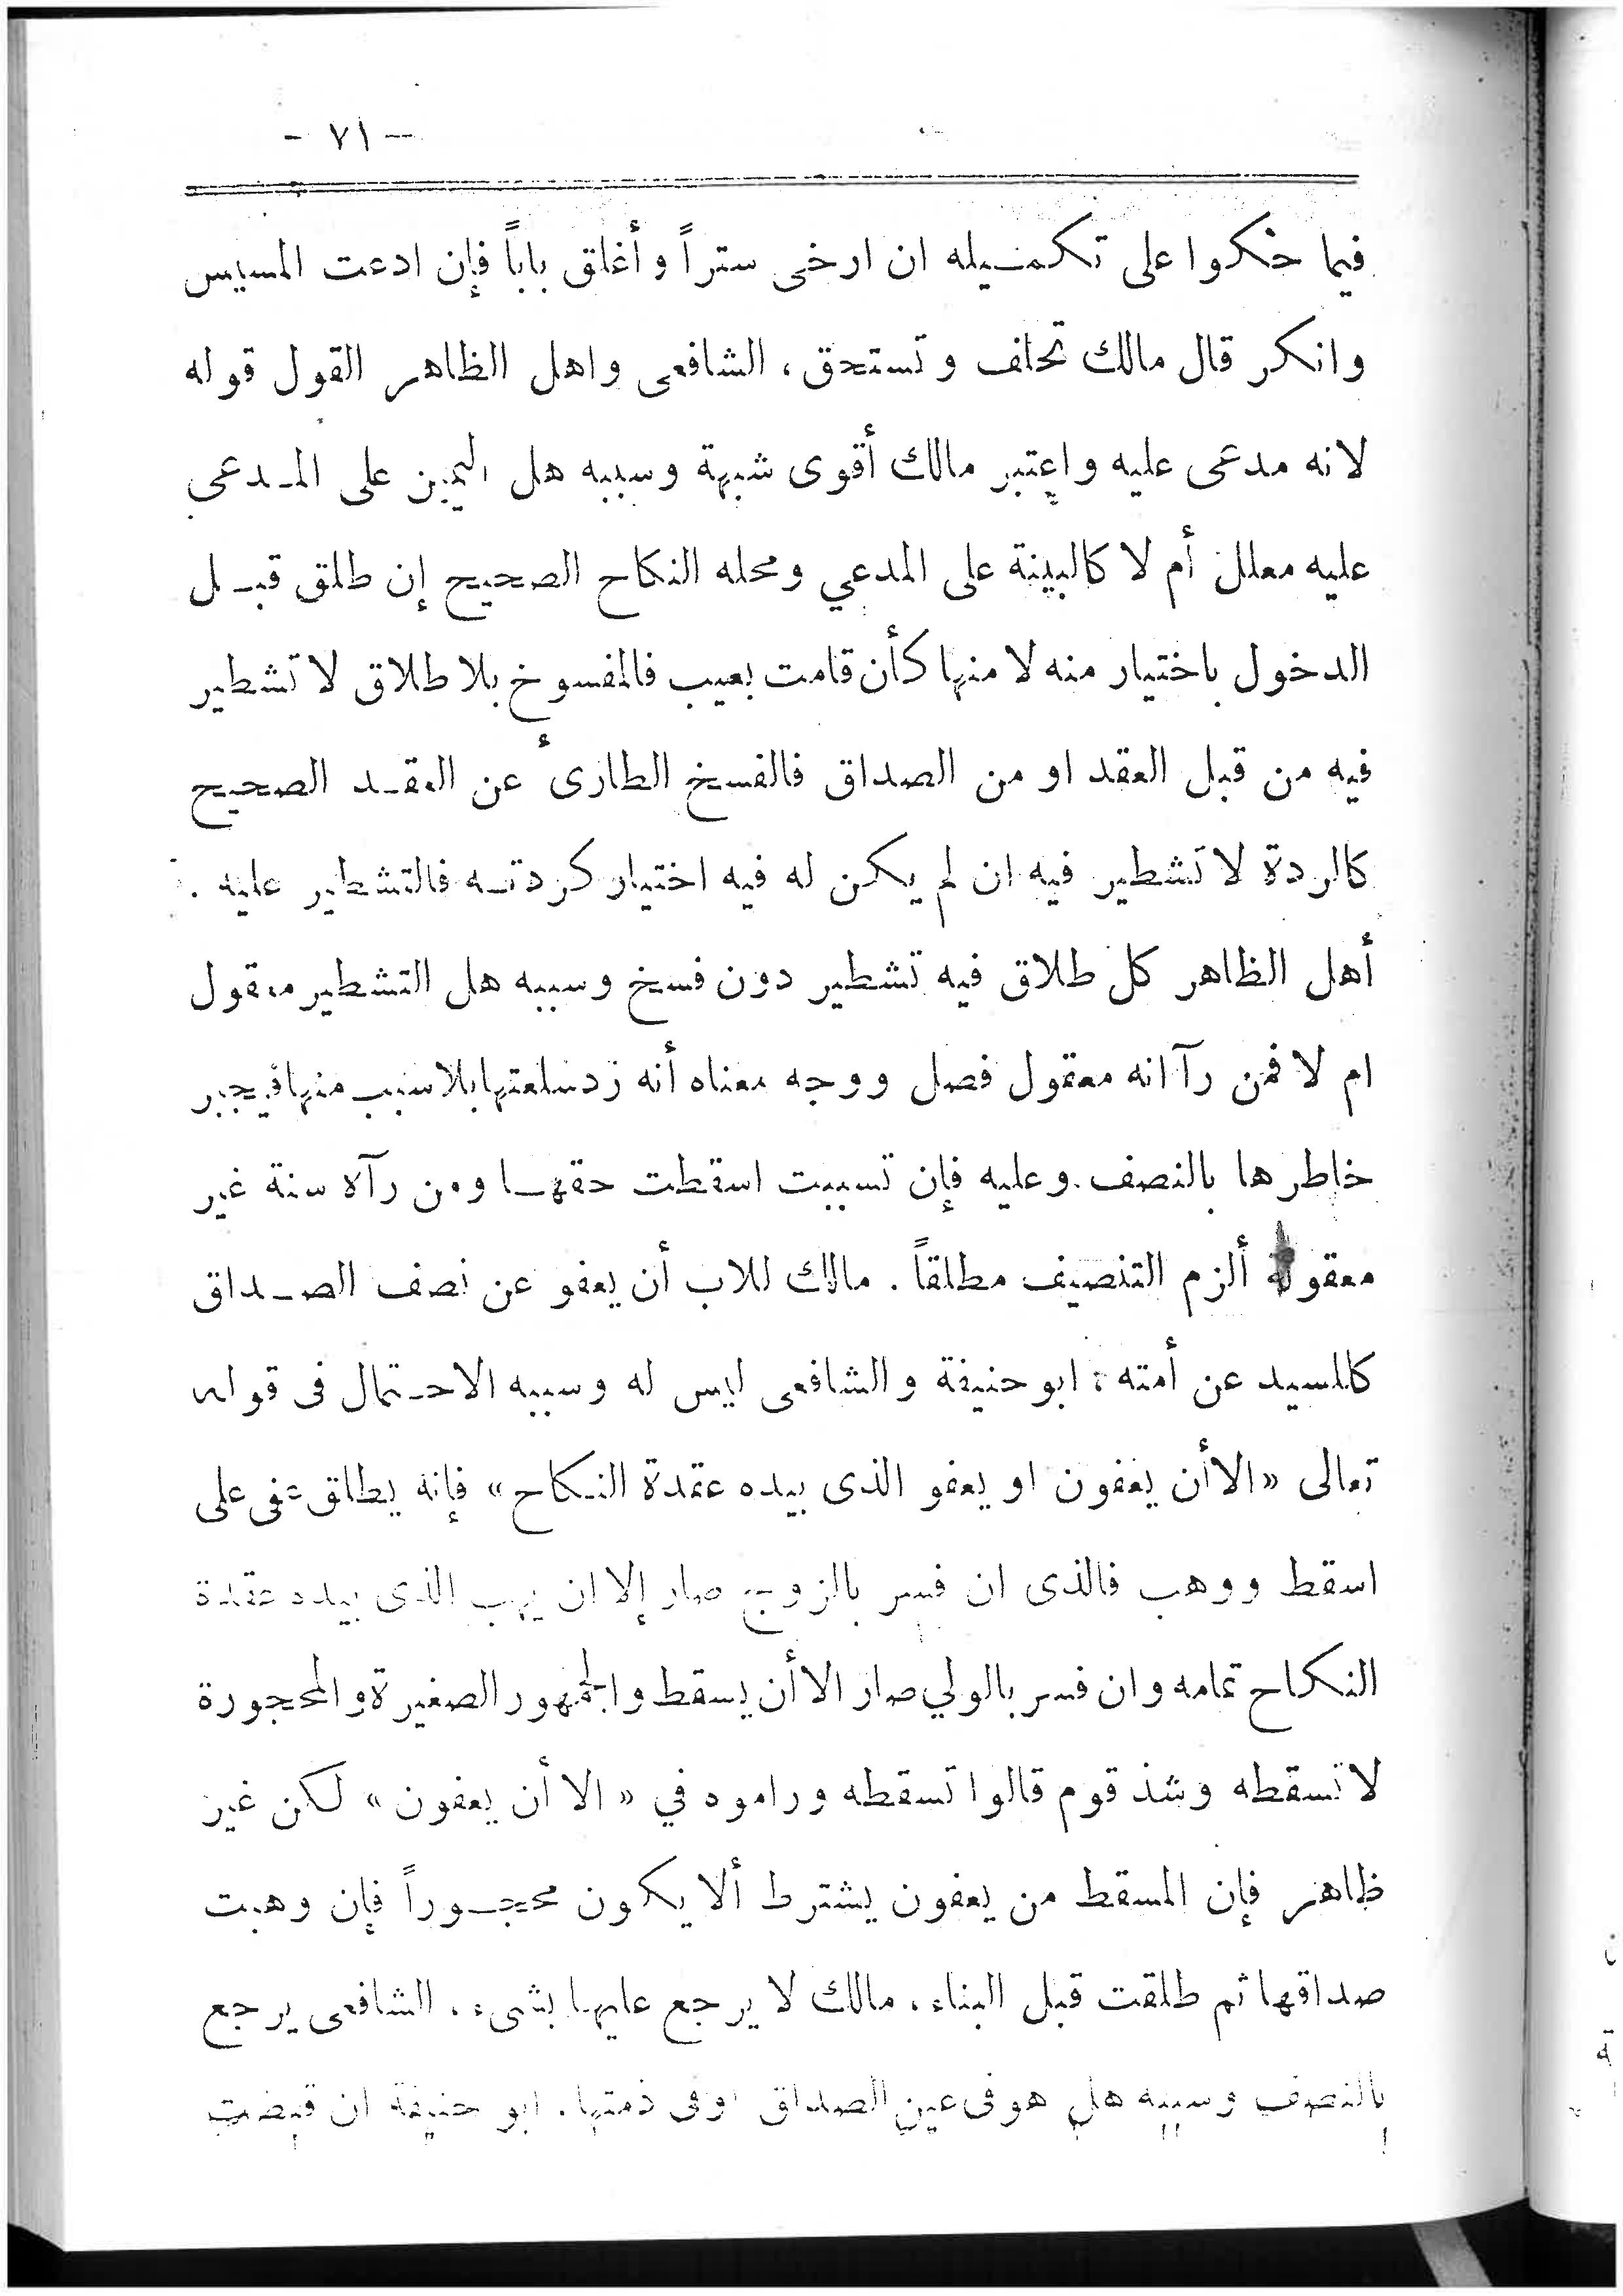 - ٧١ -
فيما حكموا على تكميله ان ارخى ستراً وأغلق باباً فإن ادعت المسيس
وانكر قال مالك تحلف وتستحق، الشافعى واهل الظاهر القول قوله
لانه مدعى عليه واعتبر مالك أقوى شبهة وسببه هل اليمين على المدعى
عليه معلل أم لا كالبينة على المدعي ومحله النكاح الصحيح إن طلق قبل
الدخول باختيار منه لا منها كأن قامت بعيب فالمفسوخ بلا طلاق لا تشطير
فيه من قبل العقد او من الصداق فالفسخ الطارئ عن العقد الصحيح
كالردة لا تشطير فيه ان لم يكن له فيه اختيار كردته فالتشطير عليه .
أهل الظاهر كل طلاق فيه تشطير دون فسخ وسببه هل التشطير معقول
ام لا فمن رآ انه معقول فصل ووجه معناه أنه رد سلعتها بلا سبب منها فيجبر
خاطرها بالنصف وعليه فإن تسببت اسقطت حقها ومن رآه سنة غير
معقولة ألزم التنصيف مطلقاً . مالك للاب أن يعفو عن نصف الصداق
كالسيد عن أمته، ابو حنيفة والشافعى ليس له وسببه الاحتمال فى قوله
تعالى «الا أن يعفون او يعفو الذى بيده عقدة النكاح» فإنه يطلق عفى على
اسقط ووهب فالذى ان فسر بالزوج صار إلا ان يهب الذى بيده عقدة
النكاح تمامه وان فسر بالولي صار الا أن يسقط والجمهور الصغيرة والمحجورة
لا تسقطه وشذ قوم قالوا تسقطه وراموه في « الا أن يعفون» لكن غير
ظاهر فإن المسقط من يعفون يشترط ألا يكون محجوراً فإن وهبت
صداقها ثم طلقت قبل البناء، مالك لا يرجع عليها بشىء، الشافعى يرجع
بالنصف وسببه هل هو فى عين الصداق او فى ذمتها. ابو حنيفة ان قبضت